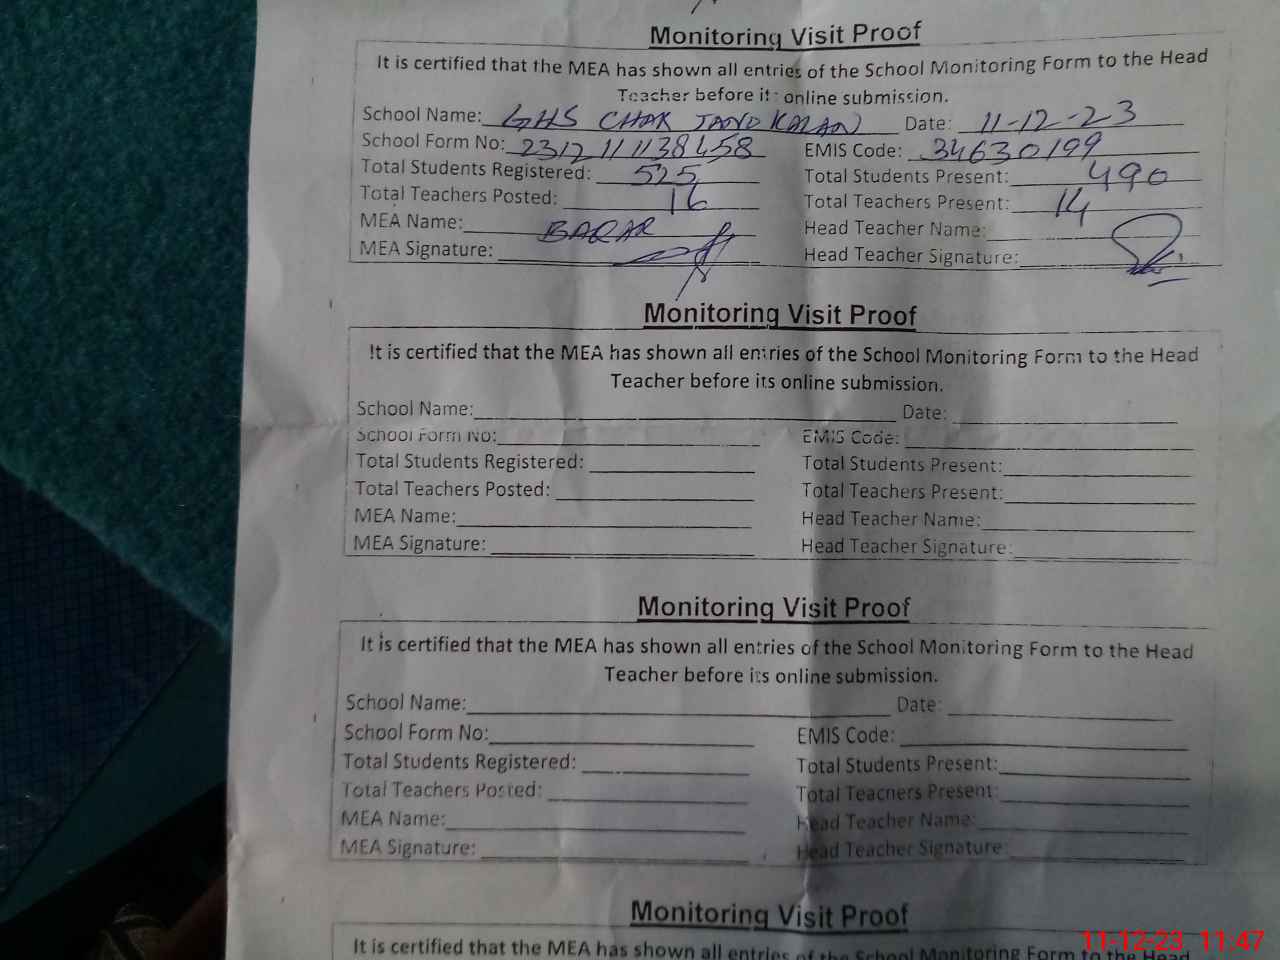 Monitoring Visit Proof
It is certified that the MEA has shown all entries of the School Monitoring Form to the Head
Teacher before its online submission.
School Name: GHS CHAK JANO KALAN Date: 11-12-23
School Form No: EMIS Code: 34630199
Total Students Registered: 525 Total Students Present: 490
Total Teachers Posted: 16 Total Teachers Present: 14
MEA Name: BARAR Head Teacher Name:
MEA Signature: Head Teacher Signature:
Monitoring Visit Proof
It is certified that the MEA has shown all entries of the School Monitoring Form to the Head
Teacher before its online submission.
School Name: Date:
School Form No: EMIS Code:
Total Students Registered: Total Students Present:
Total Teachers Posted: Total Teachers Present:
MEA Name: Head Teacher Name:
MEA Signature: Head Teacher Signature:
Monitoring Visit Proof
It is certified that the MEA has shown all entries of the School Monitoring Form to the Head
Teacher before its online submission.
School Name: Date:
School Form No: EMIS Code:
Total Students Registered: Total Students Present:
Total Teachers Posted: Total Teachers Present:
MEA Name: Head Teacher Name:
MEA Signature: Head Teacher Signature:
Monitoring Visit Proof
It is certified that the MEA has shown all entries of the School Monitoring Form to the Head
11-12-23 11:47